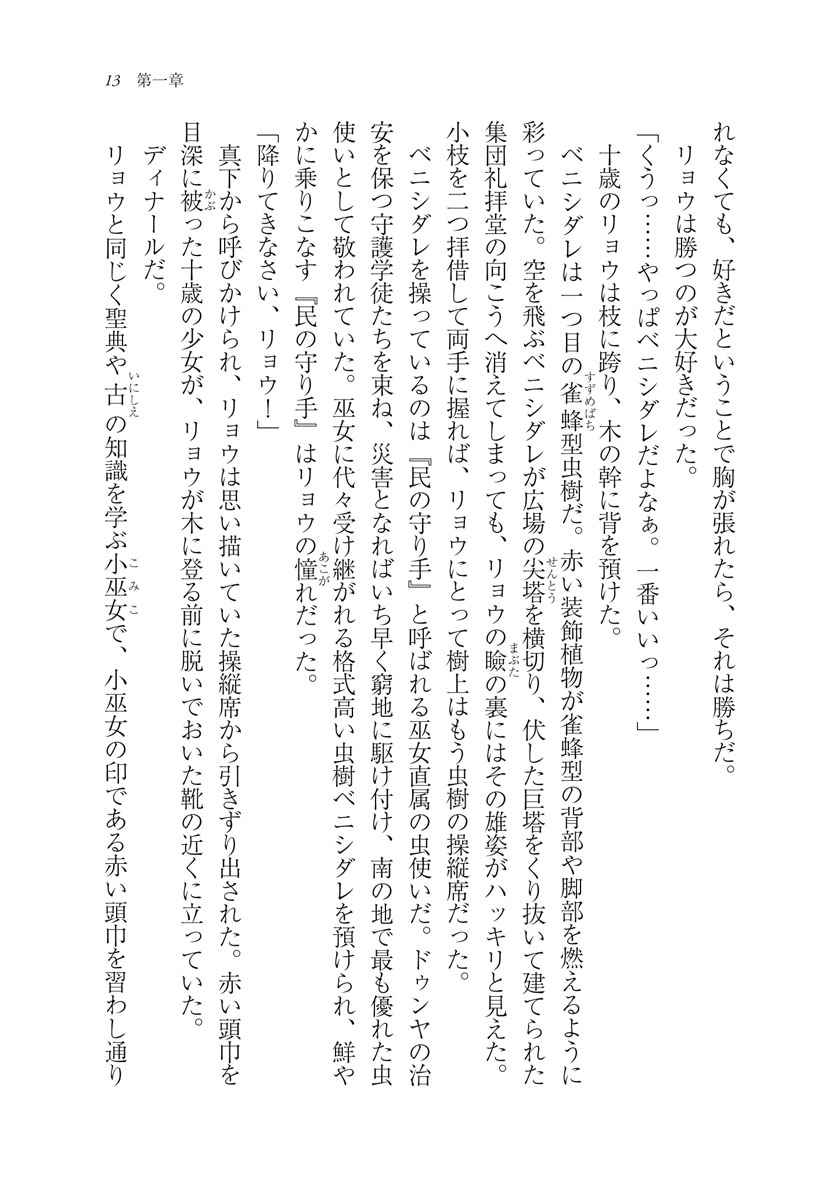 13　第一章
れなくても、好きだということで胸が張れたら、それは勝ちだ。
　リョウは勝つのが大好きだった。
「くうっ……やっぱベニシダレだよなぁ。一番いいっ……」
　十歳のリョウは枝に跨り、木の幹に背を預けた。
　ベニシダレは一つ目の雀蜂型虫樹だ。赤い装飾植物が雀蜂型の背部や脚部を燃えるように
すずめばち
彩っていた。空を飛ぶベニシダレが広場の尖塔を横切り、伏した巨塔をくり抜いて建てられた
せんとう
集団礼拝堂の向こうへ消えてしまっても、リョウの瞼の裏にはその雄姿がハッキリと見えた。
まぶた
小枝を二つ拝借して両手に握れば、リョウにとって樹上はもう虫樹の操縦席だった。
　ベニシダレを操っているのは『民の守り手』と呼ばれる巫女直属の虫使いだ。ドゥンヤの治
安を保つ守護学徒たちを束ね、災害となればいち早く窮地に駆け付け、南の地で最も優れた虫
使いとして敬われていた。巫女に代々受け継がれる格式高い虫樹ベニシダレを預けられ、鮮や
かに乗りこなす『民の守り手』はリョウの憧れだった。
あこが
「降りてきなさい、リョウ！」
　真下から呼びかけられ、リョウは思い描いていた操縦席から引きずり出された。赤い頭巾を
目深に被った十歳の少女が、リョウが木に登る前に脱いでおいた靴の近くに立っていた。
かぶ
　ディナールだ。
　リョウと同じく聖典や古の知識を学ぶ小巫女で、小巫女の印である赤い頭巾を習わし通り
いにしえ
こみこ